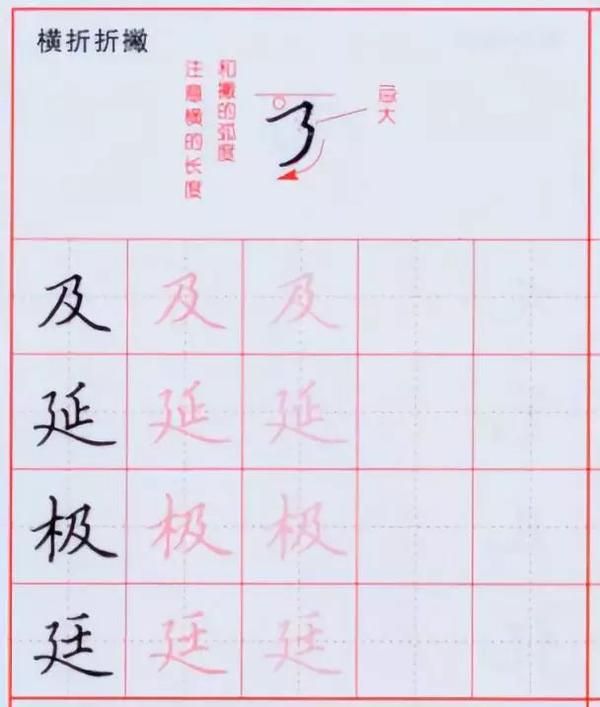 横折折撇
注意横的长度
和撇的弧度
大
及 及 及
延 延 延
极 极 极
廷 廷 廷